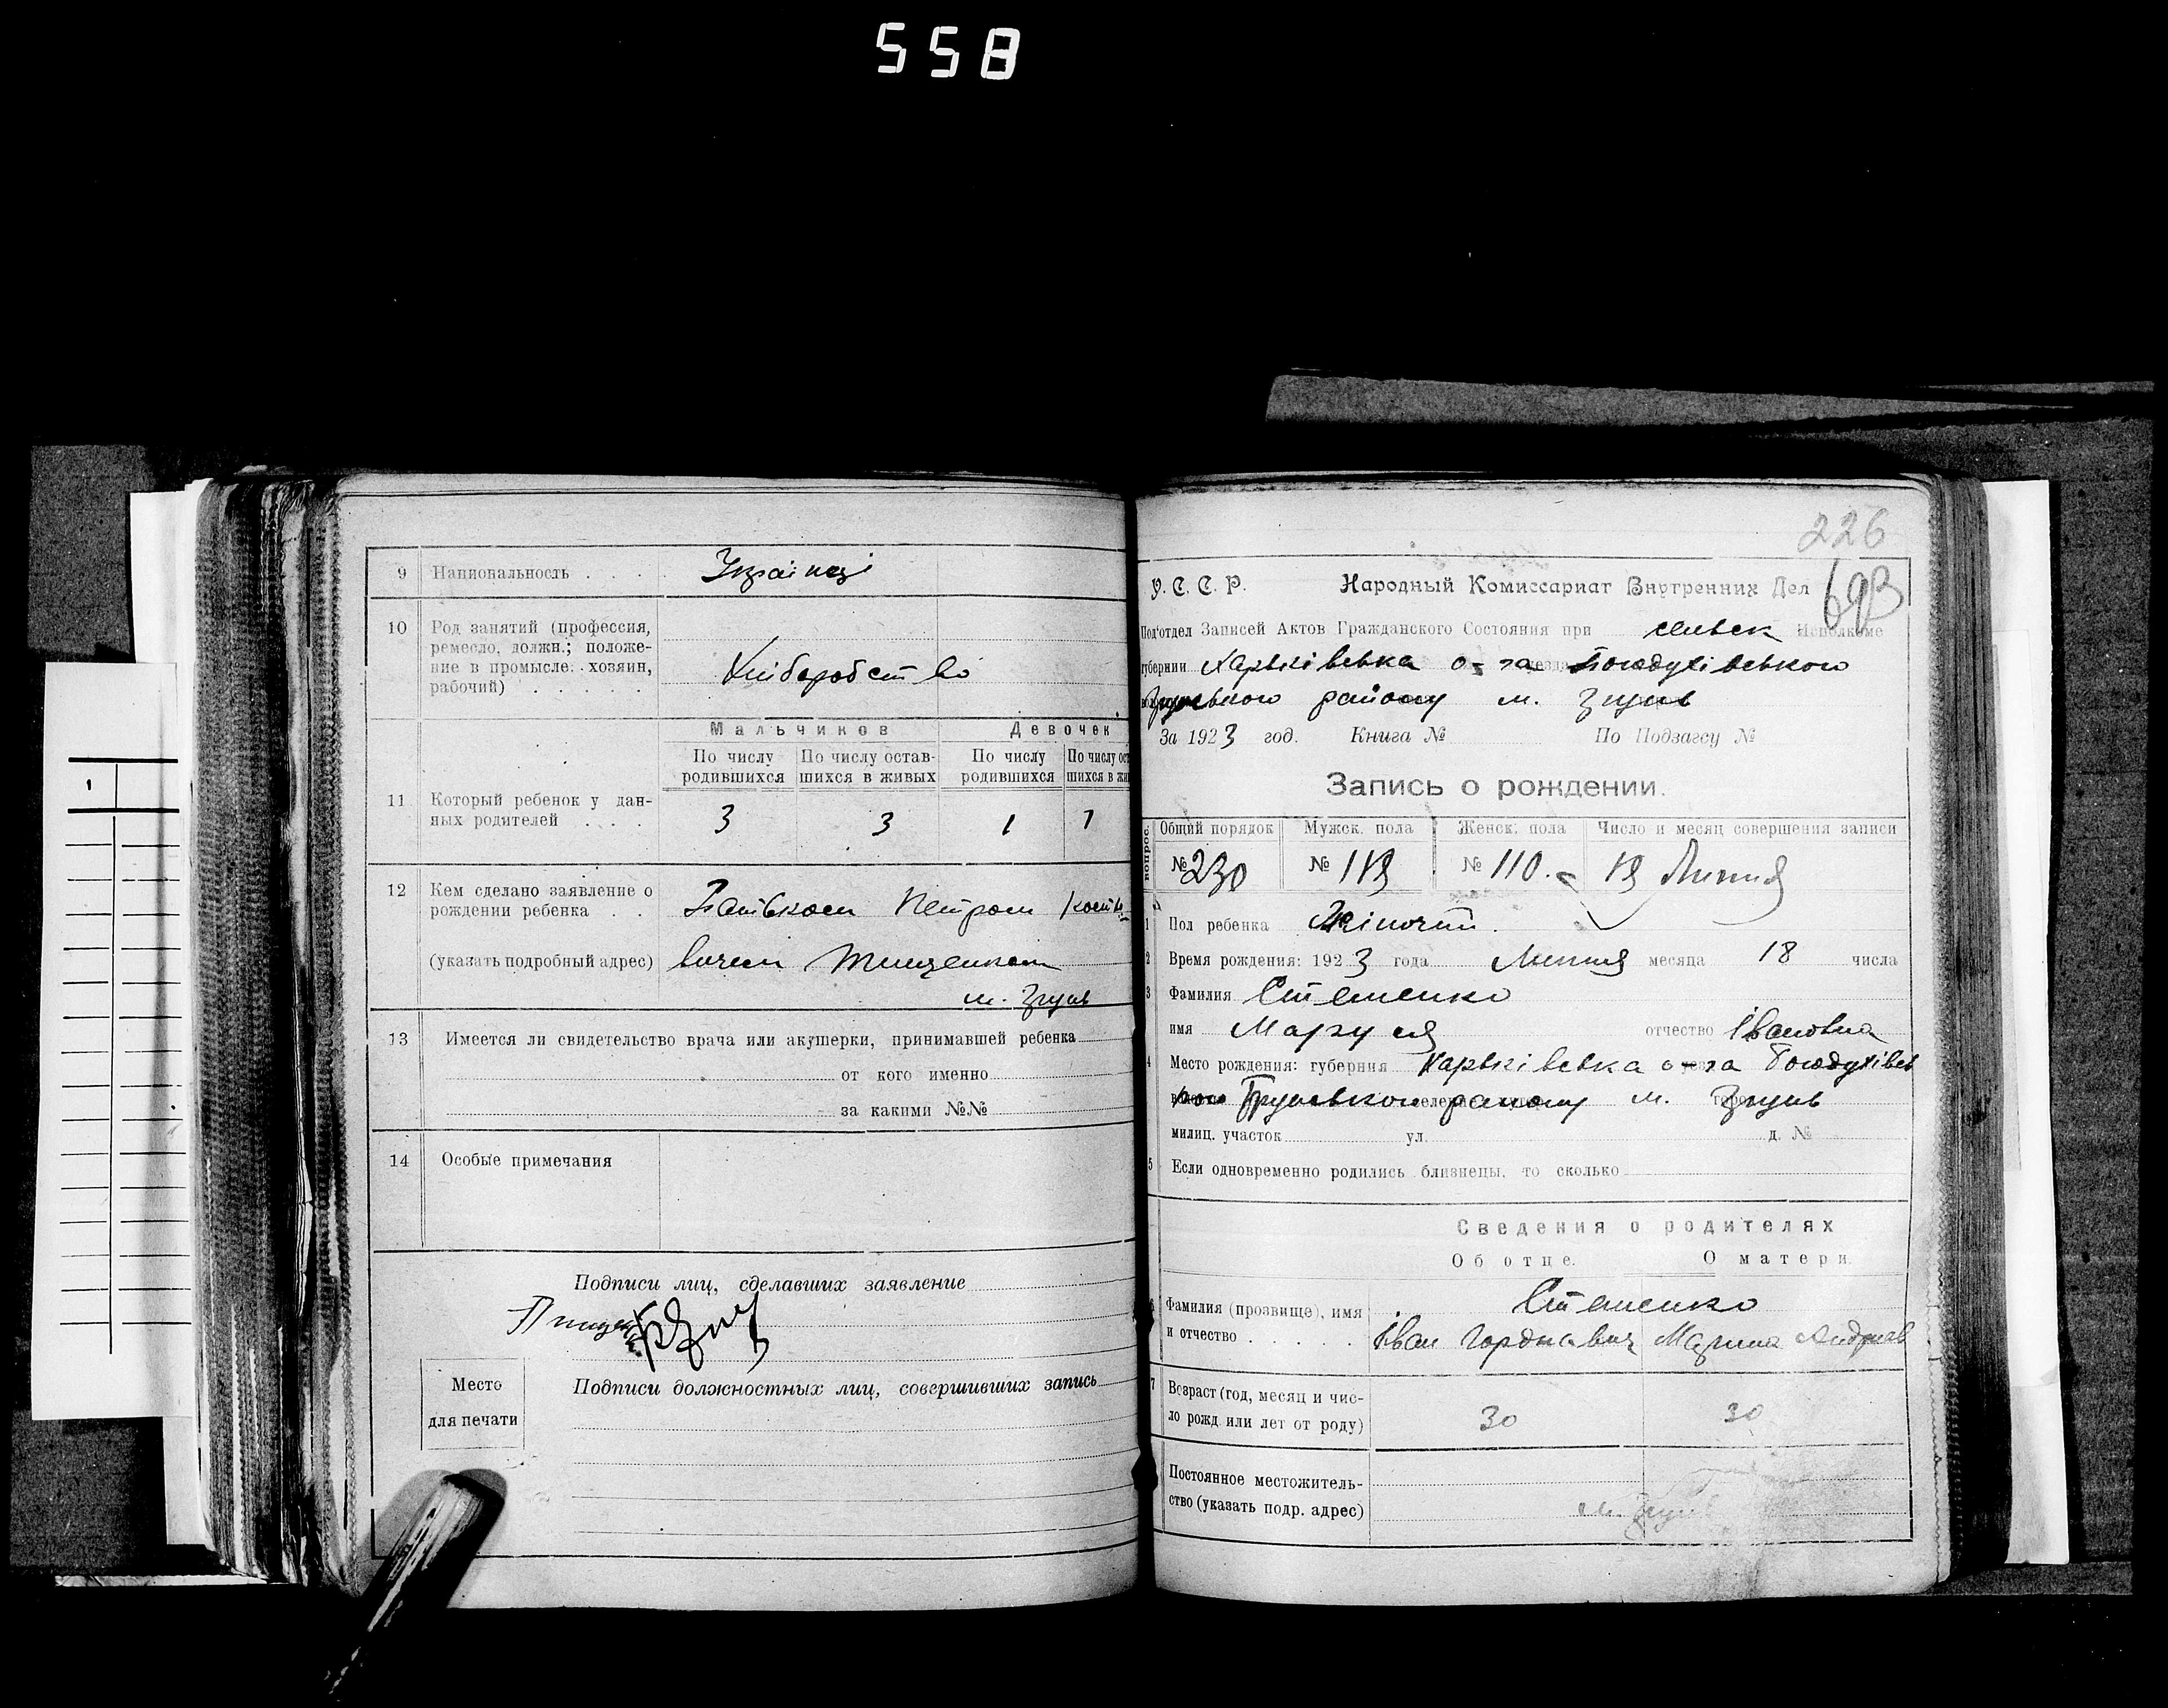 558
9 Национальность . . . . Українці
10 Род занятий (профессия,
ремесло, должн.; положе-
ние в промысле: хозяин,
рабочий) . . . . . Хліборобство
Мальчиков Девочек
По числу родившихся По числу остав-шихся в живых По числу родившихся
11 Который ребенок у дан-
ных родителей . . . 3 3 1 1
12 Кем сделано заявление о
рождении ребенка . . Батьком Петром
(указать подробный адрес) вичем Тищенком
м.
13 Имеется ли свидетельство врача или акушерки, принимавшей ребенка
от кого именно
за какими №№
14 Особые примечания
Подписи лиц, сделавших заявление
Место
для печати
Подписи должностных лиц, совершивших запись
226
693
У. С. С. Р. Народный Комиссариат Внутренних Дел
Под'отдел Записей Актов Гражданского Состояния при Исполкоме
губернии Харьківська о-га Богодухівського
району м.
За 1923 год. Книга № По Подзагсу №
Запись о рождении.
Общий порядок Мужск. пола Женск. пола Число и месяц совершения записи
№ 230 № 119 № 110. 19 Липня
1 Пол ребенка Жіночий.
2 Время рождения: 1923 года Липня месяца 18 числа
3 Фамилия Стеценко
имя Маруся отчество Івановна
4 Место рождения: губерния Харьківська о-га Богодухівсь
району м.
милиц. участок ул. д. №
5 Если одновременно родились близнецы, то сколько
Сведения о родителях
Об отце. О матери.
Стеценко
Фамилия (прозвище), имя
и отчество . . . . . Іван Гордиевич Марина Андріев
7 Возраст (год, месяц и чис-
ло рожд или лет от роду) 30 30
Постоянное местожитель-
ство (указать подр. адрес) м.